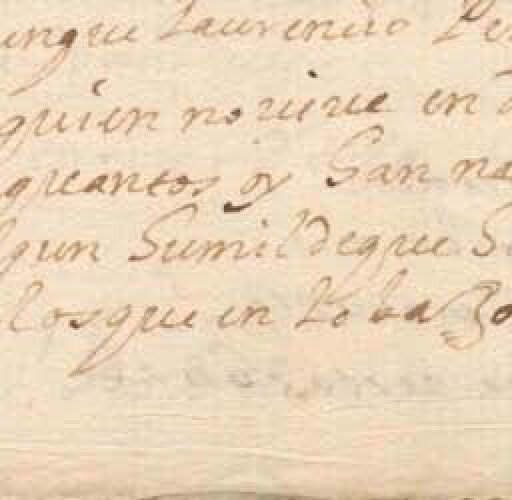 unque Laurencio Per
quien no viue en
quantos oy San na
gun Sumilde que S
los que en